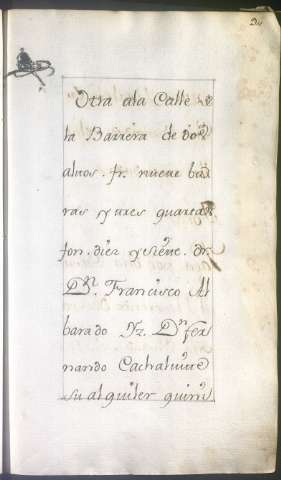 Otra ala Calle de
la Barrera de dor
altos. fr. nueve ba
ras y tres quartas
fon. diez y siete. dr.
Dn. Francisco Al
barado Yz. Dn fer
nando Cachal vive
su alquiler quinis